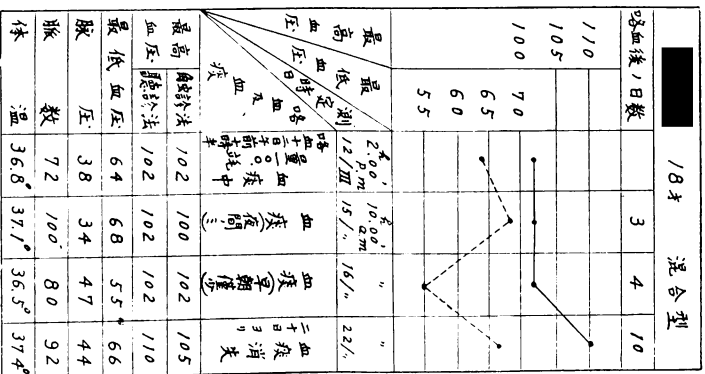 18才 混合型
喀血後ノ日数 3 4 10
110
105
100
70
65
60
55
最高血圧
最低血圧
測定日時
喀血及血痰、
2.00' p.m 12/III
10.00' a.m 15/〃
〃 16/〃
〃 22/〃
血痰(夜間ミ)
血痰(早朝僅少)
血痰消失
最高血圧 触診法 102 100 102 105
聴診法 102 102 102 110
最低血圧 64 68 55 66
脈圧 38 34 47 44
脈数 72 100 80 92
体温 36.8° 37.1° 36.5° 37.4°